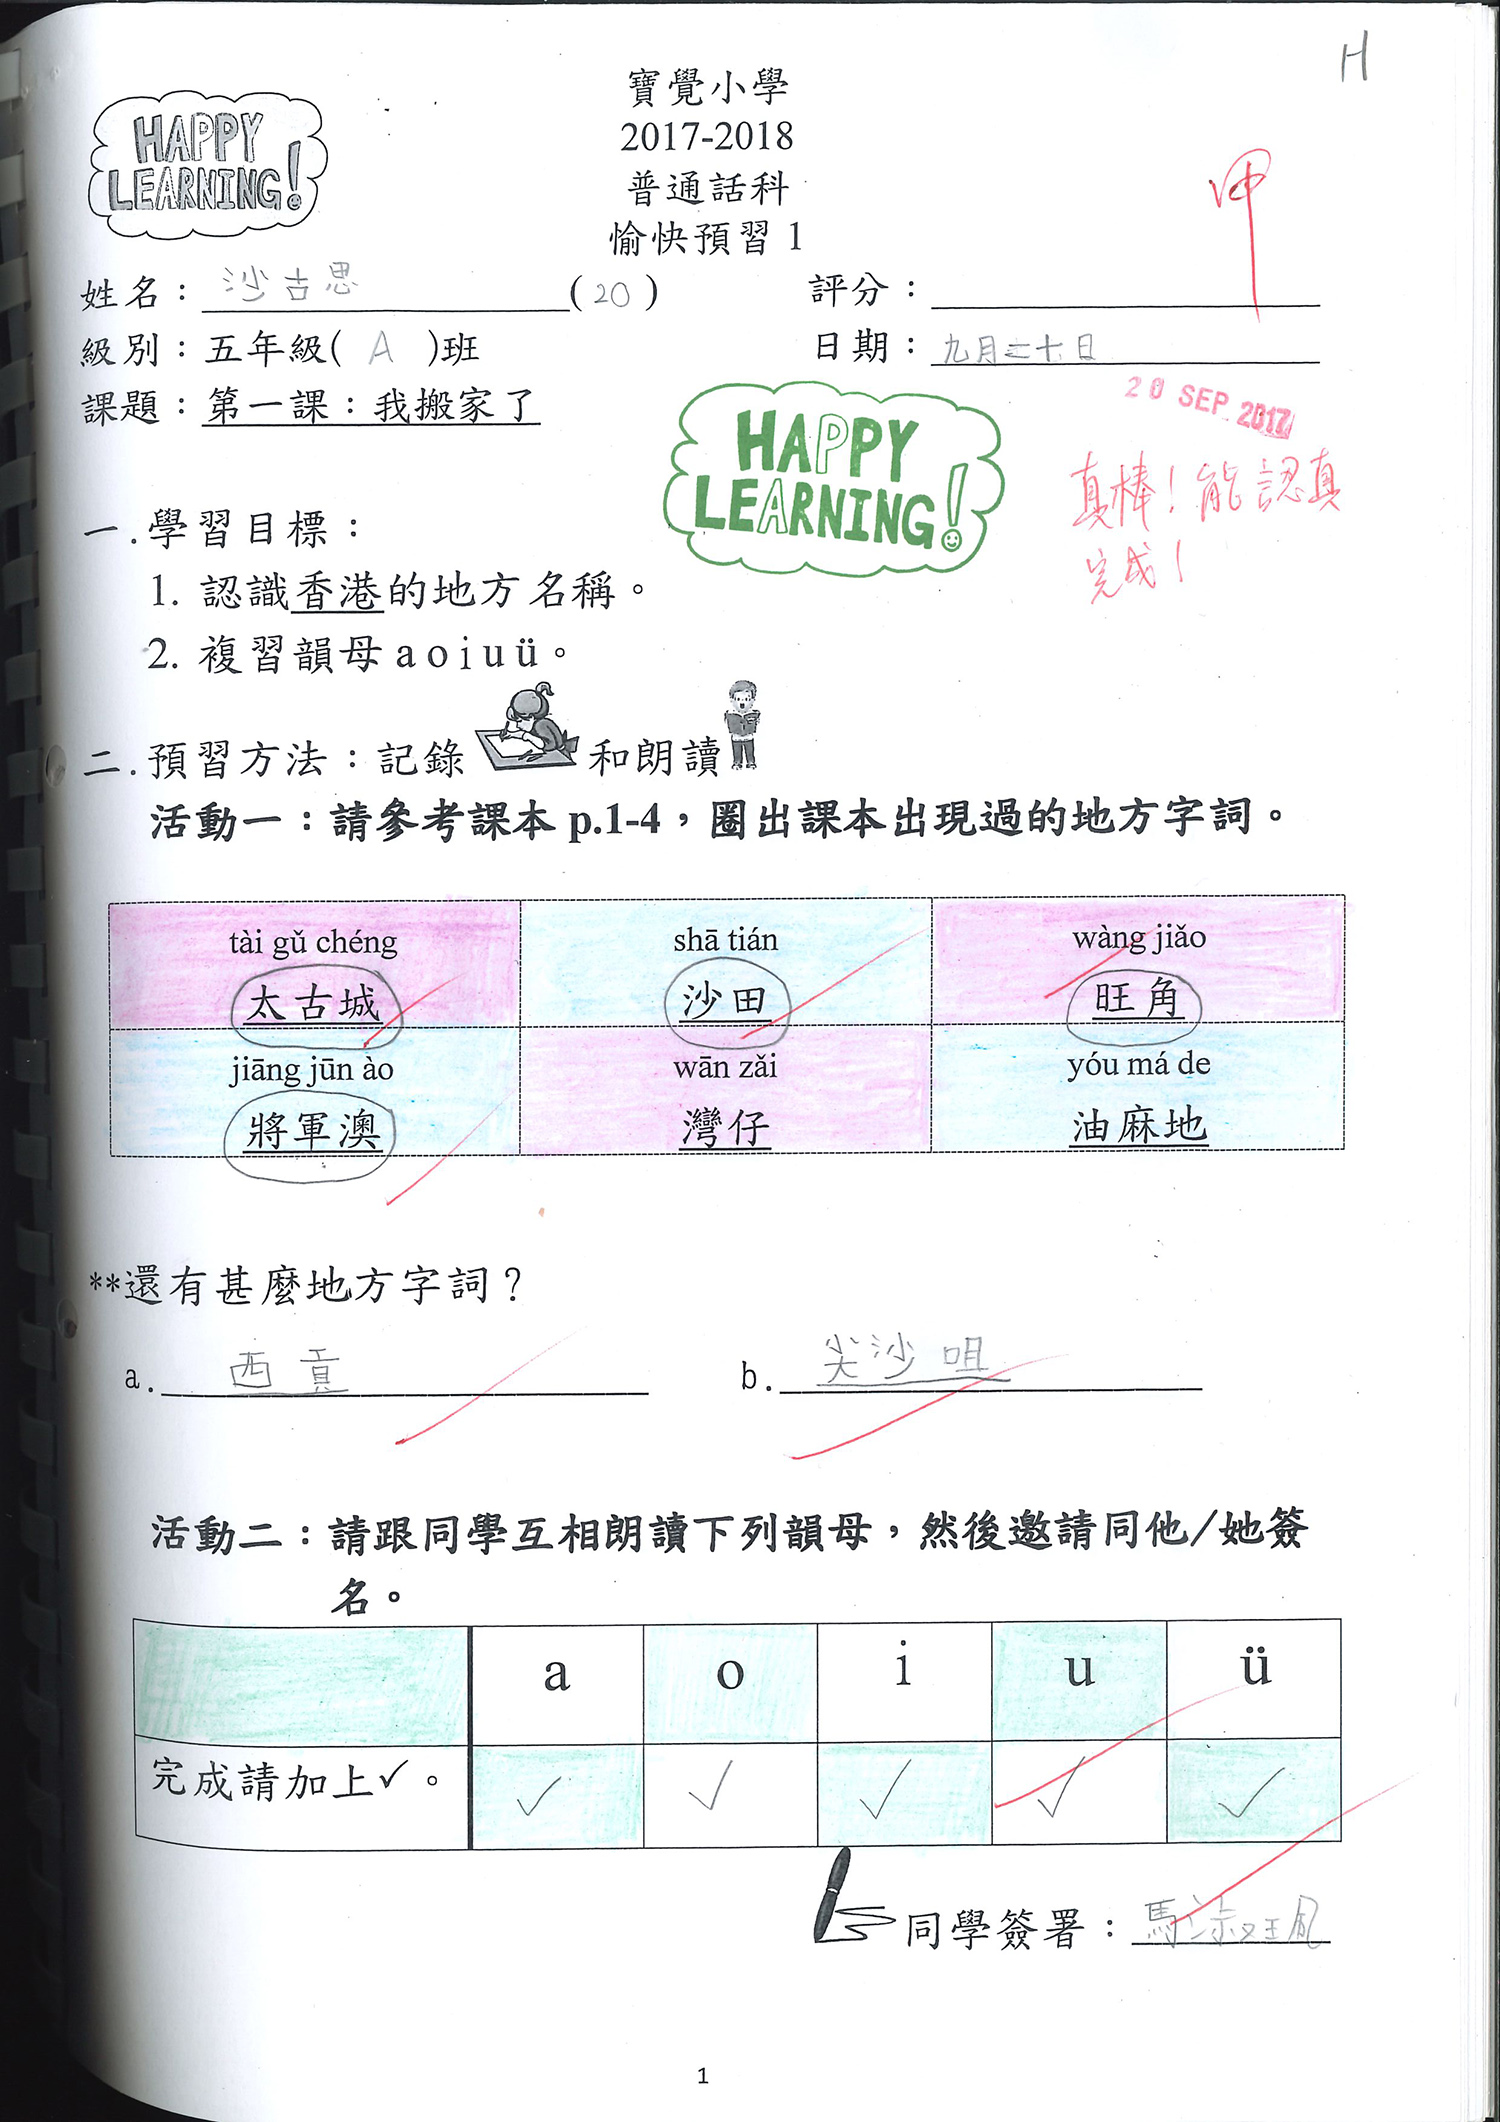 H
寶覺小學
HAPPY
LEARNING!
2017-2018
普通話科
愉快預習 1
甲
姓名：沙古思(20)
評分：
級別：五年級( A )班
日期：九月二十日
課題：第一課：我搬家了
20 SEP 2017
HAPPY
LEARNING!
真棒！能認真
完成！
一.學習目標：
1. 認識香港的地方名稱。
2. 複習韻母 a o i u ü。
二.預習方法：記錄和朗讀
活動一：請參考課本 p.1-4，圈出課本出現過的地方字詞。
tài gǔ chéng
太古城
shā tián
沙田
wàng jiǎo
旺角
jiāng jūn ào
將軍澳
wān zǎi
灣仔
yóu má de
油麻地
**還有甚麼地方字詞？
a. 西貢
b. 尖沙咀
活動二：請跟同學互相朗讀下列韻母，然後邀請同他/她簽
名。
a o i u ü
完成請加上✓。 ✓ ✓ ✓ ✓ ✓
同學簽署：馬
1